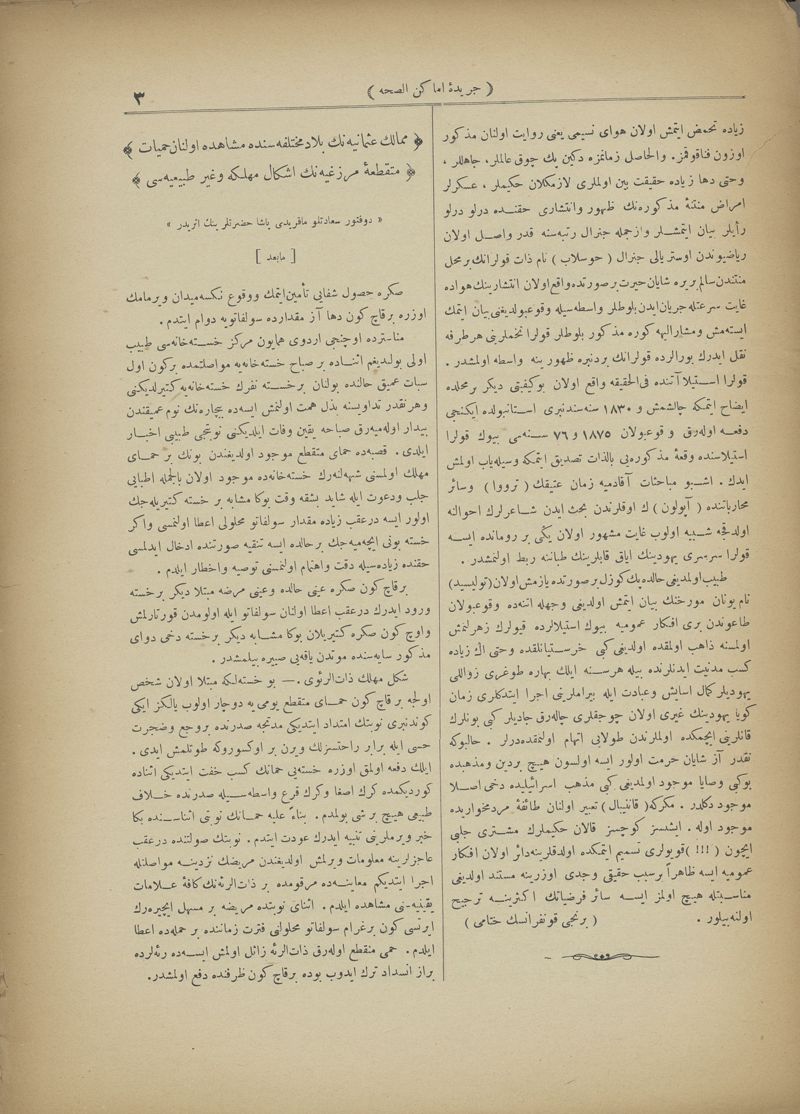 ( جريدۀ اماكن الصحه )
٣
زياده تحمض ايتمش اولان هواى نسيمى يعنى روايت اولنان مذكور
اوزون فناقوقمز . والحاصل زمانمزه دكين پك چوق عالملر ، جاهللر ،
وحتى دها زياده حقيقت بين اولملرى لازمكلان حكيملر ، عسكرلر
امراض منتنهٔ مذكوره‌نك ظهور وانتشارى حقنده درلو درلو
رأيلر بيان ايتمشلر وازجمله جنرال رتبه‌سنه قدر واصل اولان
رياضيوندن اوستريالى جنرال ( حوسلاب ) نام ذات قولرانك بر محل
منتندن سالم بر يره شايان حيرت بر صورتده واقع اولان انتشارينك هواده
غايت سرعتله جريان ايدن بلوطلر واسطه‌سيله وقوعبولديغنى بيان ايتمك
ايسته‌مش ومشاراليهه كوره مذكور بلوطلر قولرا تخملرينى هر طرفه
نقل ايدرك بورالرده قولرانك بردنبره ظهورينه واسطه اولمشدر .
قولرا استيلاآتنده فى‌الحقيقه واقع اولان بوكيفيتى ديكر بر محلده
ايضاح ايتمكه چالشمش و ١٨٣٠ سنه‌سندنبرى استانبولده ايكنجى
دفعه اوله‌رق وقوعبولان ١٨٧٥ و ٧٦ سنه‌سى بيوك قولرا
استيلاسنده وقعهٔ مذكوره‌يى بالذات تصديق ايتمكه وسيله‌ياب اولمش
ايدك . اشبو مباحثات آقادميه زمان عتيقك ( تروو‌ا ) وسائر
محارباتنده ( آپولون ) ك اوقلرندن بحث ايدن شاعرلرك احوالنه
اولدقجه شبيه اولوب غايت مشهور اولان يكى بر رومانده ايسه
قولرا سرسرى يهودينك اياق قابلرينك طباننه ربط اولنمشدر .
طبيب اولمديغى حالده پك كوزل بر صورتده يازمش اولان (توليسيد)
نام يونان مورخنك بيان ايتمش اولديغى وجهله اتنه‌ده وقوعبولان
طاعوندن برى افكار عموميه بيوك استيلالرده قيولرك زهرلنمش
اولمسنه ذاهب اولمقده اولديغى كبى خرستيانلقده وحتى اك زياده
كسب مدنيت ايدنلرنده بيله هرسنه ايلك بهاره طوغرى زواللى
يهوديلر كمال اسايش وعبادت ايله بيراملرينى اجرا ايتدكلرى زمان
كويا يهودينك غيرى اولان چوجقلرى چاله‌رق جاديلر كبى بونلرك
قانلرينى ايچمكده اوملرندن طولايى اتهام اولنمقده‌درلر . حالبوكه
نقدر آز شايان حرمت اولور ايسه اولسون هيچ بر دين ومذهبده
بوكبى وصايا موجود اولمديغى كبى مذهب اسرائيليده دخى اصلا
موجود دكلدر . مكركه ( قانيبال ) تعبير اولنان طائفهٔ مردمخواريده
موجود اوله . ايشسز كوچسز قالان حكيملرك مشترى جلبى
ايچون ( !!! ) قويولرى تسميم ايتمكده اولدقلرينه دائر اولان افكار
عموميه ايسه ظاهراً بر سبب حقيقى وجدى اوزرينه مستند اولديغى
مناسبتله هيچ اولمز ايسه سائر فرضياتك اكثرينه ترجيح
اولنه‌بيلور .
( برنجى قونفرانسك ختامى )
﴿ ممالك عثمانيه‌نك بلاد مختلفه‌سنده مشاهده اولنان حميات ﴾
﴿ متقطعهٔ مرزغيه‌نك اشكال مهلكه وغير طبيعيه‌سى ﴾
« دوقتور سعادتلو ماقريدى پاشا حضرتلرينك اثريدر »
[ مابعد ]
صكره حصول شفايى تأمين ايتمك ووقوع نكسه ميدان ويرمامك
اوزره بر قاچ كون دها آز مقدارده سولفاتويه دوام ايتدم .
مناسترده اوچنجى اردوى همايون مركز خسته‌خانه‌سى طبيب
اولى بولنديغم اثناده بر صباح خسته‌خانه‌يه مواصلتمده بركون اول
سبات عميق حالنده بولنان بر خسته نفرك خسته‌خانه‌يه كتيرلديكنى
وهرنقدر تداويسنه بذل همت اولنمش ايسه‌ده بيچاره‌نك نوم عميقندن
بيدار اوله‌ميه‌رق صباحه يقين وفات ايلديكنى نوبتجى طبيبى اخبار
ايلدى . قصبه‌ده حماى متقطع موجود اولديغندن بونك بر حماى
مهلك اولمسنى شبهه‌لنه‌رك خسته‌خانه‌ده موجود اولان بالجمله اطبايى
جلب ودعوت ايله شايد بشقه وقت بوكا مشابه بر خسته كتيريله‌جك
اولور ايسه درعقب زياده مقدار سولفاتو محلولى اعطا اولنمسى واكر
خسته بونى ايچه‌ميه‌جك بر حالده ايسه تنقيه صورتنده ادخال ايدلمسى
حقنده زياده‌سيله دقت واهتمام اولنمسنى توصيه واخطار ايلدم .
بر قاچ كون صكره عينى حالده وعينى مرضه مبتلا ديكر بر خسته
ورود ايدرك درعقب اعطا اولنان سولفاتو ايله اولومدن قورتارلمش
واوچ كون صكره كتيريلان بوكا مشابه ديكر بر خسته دخى دواى
مذكور سايه‌سنده موتدن ياقه‌يى صيره بيلمشدر .
شكل مهلك ذات‌الرئوى . — بو خسته‌لكه مبتلا اولان شخص
اولجه بر قاچ كون حماى متقطع يومى يه دوچار اولوب يالكز ايكى
كوندنبرى نوبتك امتداد ايتديكى مدتجه صدرنده بر وجع وضجرت
حسى ايله برابر راحتسزلك ويرن بر اوكسوروكه طوتلمش ايدى .
ايلك دفعه اولمق اوزره خسته‌يى حمانك كسب خفت ايتديكى اثناده
كورديكمده كرك اصغا وكرك قرع واسطه‌سيله صدرنده خلاف
طبيعى هيچ بر شى بولمدم . بناءً عليه حمانك نوبتى اثناسنده بكا
خبر ويرملرينى تنبيه ايدرك عودت ايتدم . نوبتك صولتنده درعقب
عاجزلرينه معلومات ويرلمش اولديغندن مريضك نزدينه مواصلتله
اجرا ايتديكم معاينه‌ده مرقومده بر ذات‌الرئه‌نك كافهٔ علامات
يقينيه‌سنى مشاهده ايلدم . اثناى نوبتده مريضه بر مسهل ايچيره‌رك
ايرتسى كون بر غرام سولفاتو محلولنى فترت زماننده بر حمله‌ده اعطا
ايلدم . حمى متقطع اوله‌رق ذات‌الرئه زائل اولمش ايسه‌ده رئه‌لرده
براز انسداد ترك ايدوب بوده بر قاچ كون ظرفنده دفع اولمشدر .